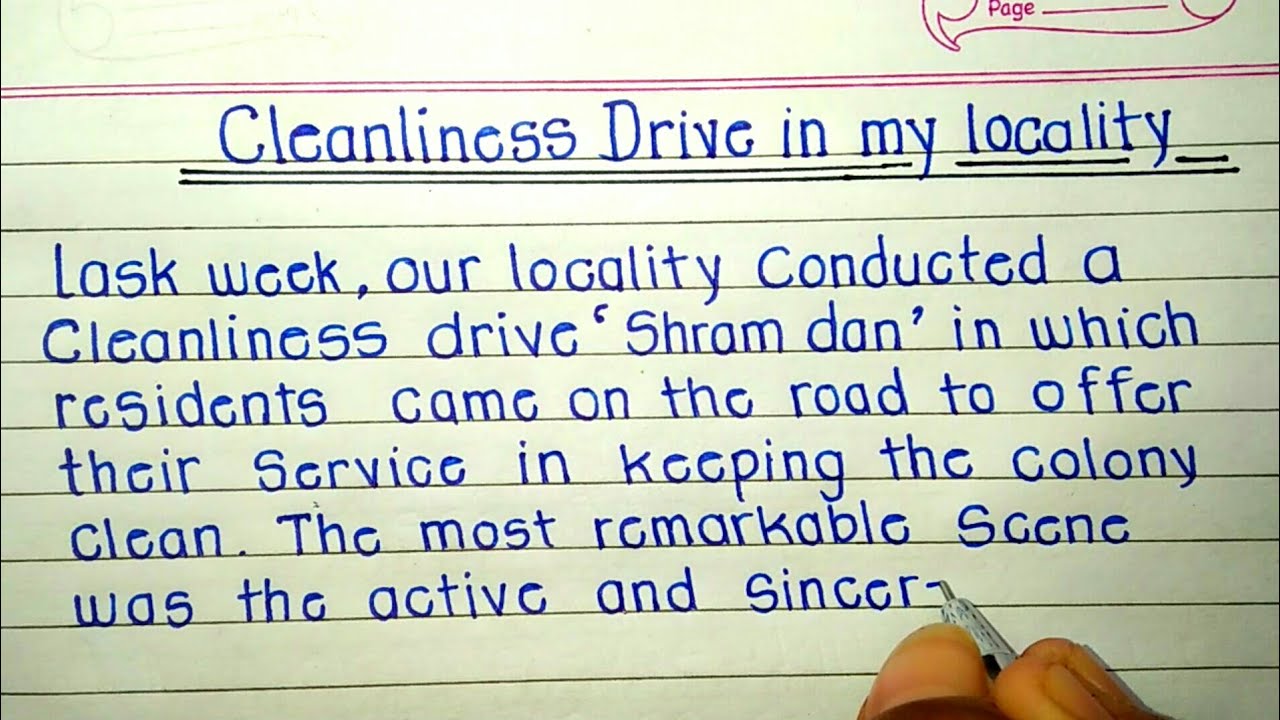 Page
Cleanliness Drive in my locality
Lask week, our locality Conducted a
Cleanliness drive ‘Shram dan’ in which
residents came on the road to offer
their Service in keeping the colony
clean. The most remarkable Scene
was the active and sincer-